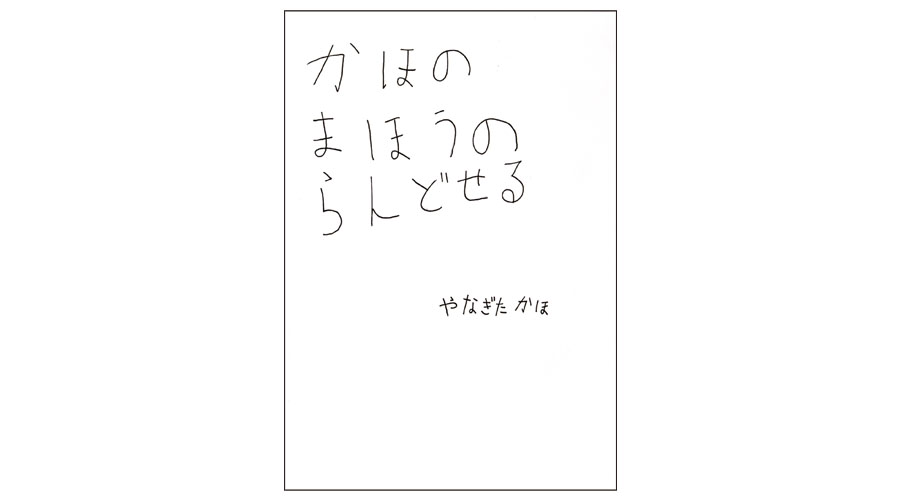 かほの
まほうの
らんどせる
やなぎた かほ